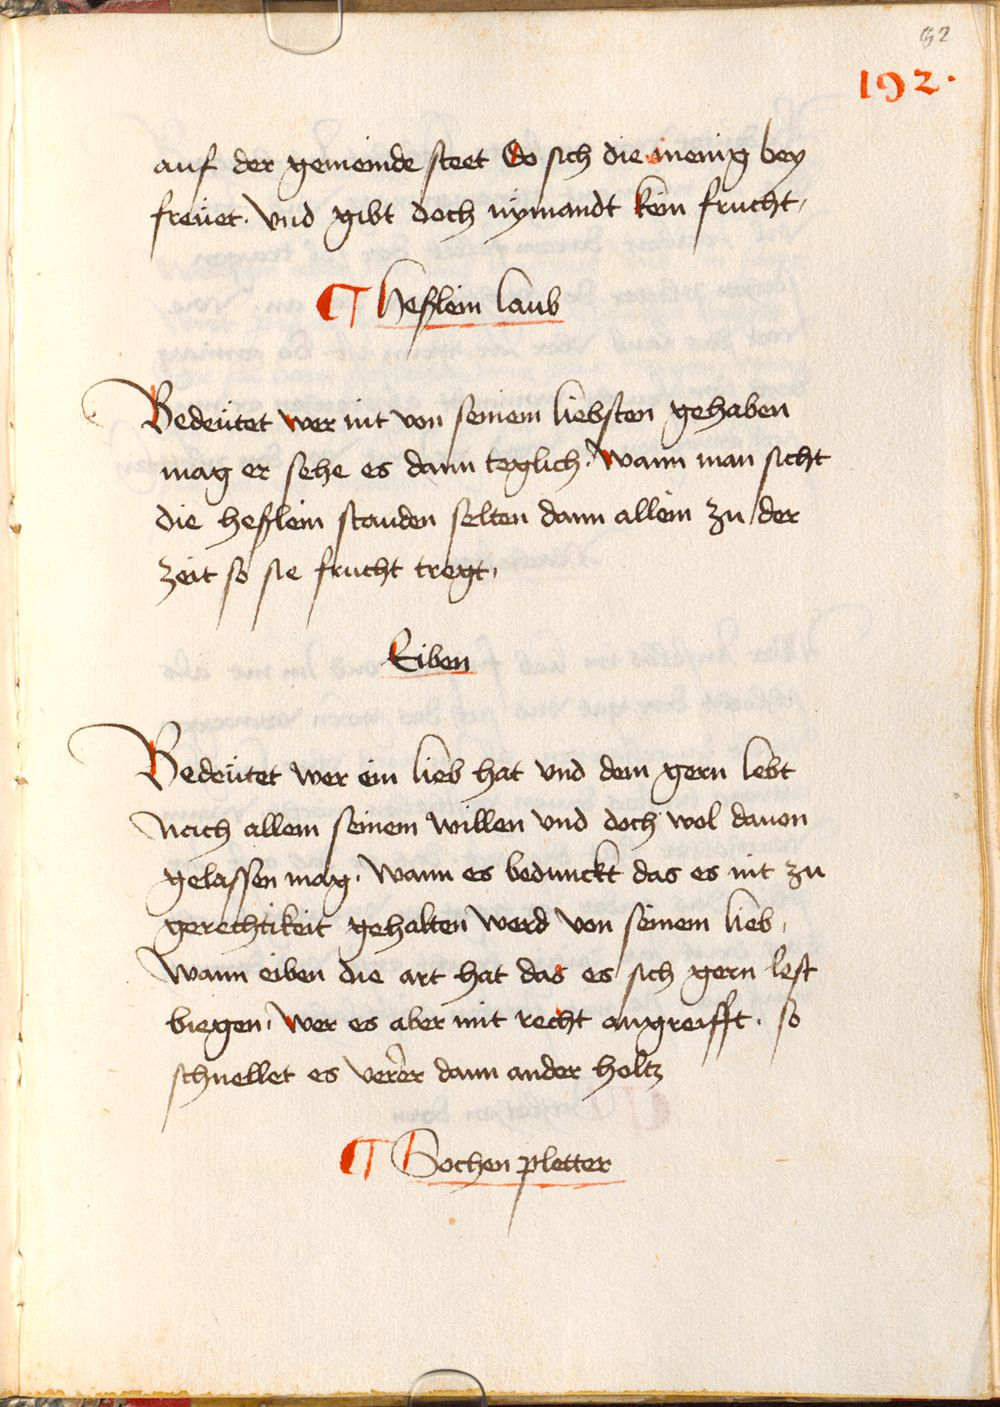 92
192.
auf der gemeinde steet Do sich die menig bey
freüet. Vnd gibt doch nÿmandt kein frucht,
¶ Heslein laub
Bedeütet wer nit von seinem liebsten gehaben
mag er sehe es dann teglich. Wann man sicht
die heslein stauden selten dann allein zu der
zeit so sie frucht tregt,
Eiben
Bedeütet wer ein lieb hat vnd dem gern lebt
Nach allem seinem willen vnd doch wol dauon
gelassen mag. Wann es bedunckt das es nit zu
gerechtikeit gehalten werd von seinem lieb,
Wann eiben die art hat das es sich gern lest
biegen, Wer es aber nit recht angreifft. so
schnellet es dann ander holtz
¶ Bochen pletter